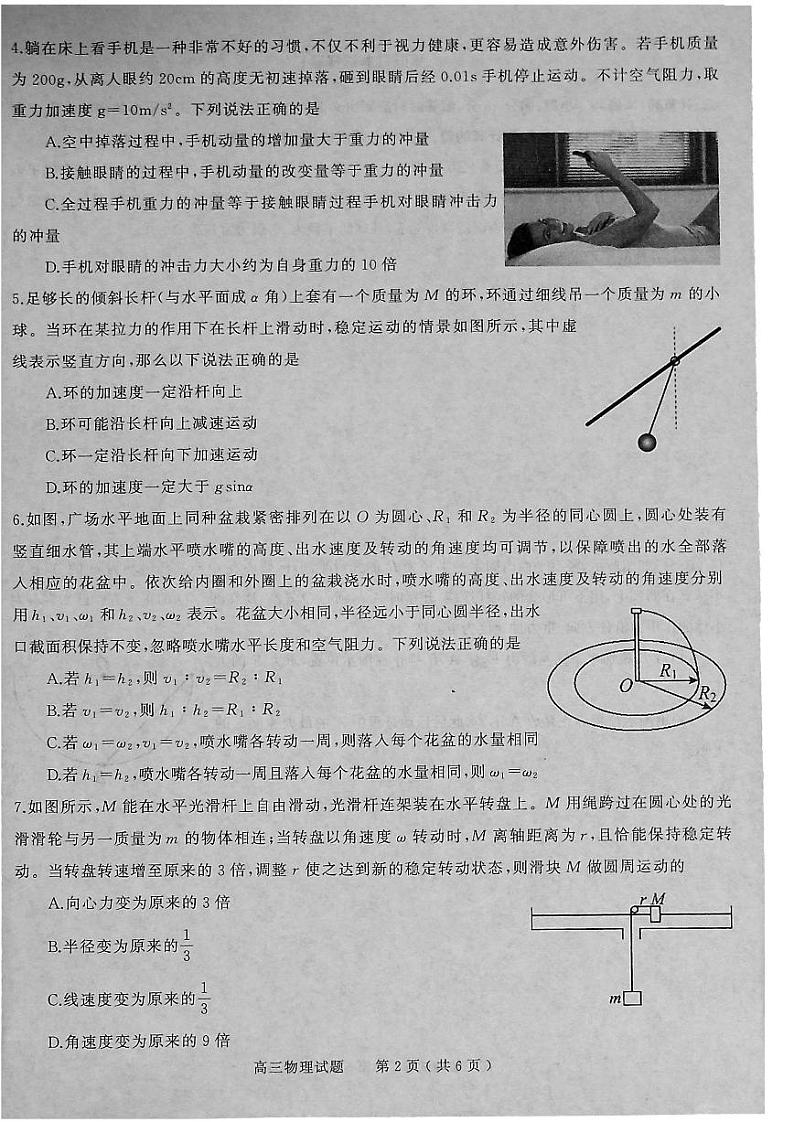 4.躺在床上看手机是一种非常不好的习惯,不仅不利于视力健康,更容易造成意外伤害。若手机质量
为 200g,从离人眼约 20cm 的高度无初速掉落,砸到眼睛后经 0.01s 手机停止运动。不计空气阻力,取
重力加速度 g=10m/s²。下列说法正确的是
A.空中掉落过程中,手机动量的增加量大于重力的冲量
B.接触眼睛的过程中,手机动量的改变量等于重力的冲量
C.全过程手机重力的冲量等于接触眼睛过程手机对眼睛冲击力
的冲量
D.手机对眼睛的冲击力大小约为自身重力的 10 倍
5.足够长的倾斜长杆(与水平面成 α 角)上套有一个质量为 M 的环,环通过细线吊一个质量为 m 的小
球。当环在某拉力的作用下在长杆上滑动时,稳定运动的情景如图所示,其中虚
线表示竖直方向,那么以下说法正确的是
A.环的加速度一定沿杆向上
B.环可能沿长杆向上减速运动
C.环一定沿长杆向下加速运动
D.环的加速度一定大于 gsinα
6.如图,广场水平地面上同种盆栽紧密排列在以 O 为圆心、R₁ 和 R₂ 为半径的同心圆上,圆心处装有
竖直细水管,其上端水平喷水嘴的高度、出水速度及转动的角速度均可调节,以保障喷出的水全部落
入相应的花盆中。依次给内圈和外圈上的盆栽浇水时,喷水嘴的高度、出水速度及转动的角速度分别
用 h₁、v₁、ω₁ 和 h₂、v₂、ω₂ 表示。花盆大小相同,半径远小于同心圆半径,出水
口截面积保持不变,忽略喷水嘴水平长度和空气阻力。下列说法正确的是
A.若 h₁=h₂,则 v₁∶v₂=R₂∶R₁
B.若 v₁=v₂,则 h₁∶h₂=R₁∶R₂
C.若 ω₁=ω₂,v₁=v₂,喷水嘴各转动一周,则落入每个花盆的水量相同
D.若 h₁=h₂,喷水嘴各转动一周且落入每个花盆的水量相同,则 ω₁=ω₂
O R₁ R₂
7.如图所示,M 能在水平光滑杆上自由滑动,光滑杆连架装在水平转盘上。M 用绳跨过在圆心处的光
滑滑轮与另一质量为 m 的物体相连;当转盘以角速度 ω 转动时,M 离轴距离为 r,且恰能保持稳定转
动。当转盘转速增至原来的 3 倍,调整 r 使之达到新的稳定转动状态,则滑块 M 做圆周运动的
A.向心力变为原来的 3 倍
B.半径变为原来的 1/3
C.线速度变为原来的 1/3
D.角速度变为原来的 9 倍
r M
m
高三物理试题 第 2 页 ( 共 6 页 )